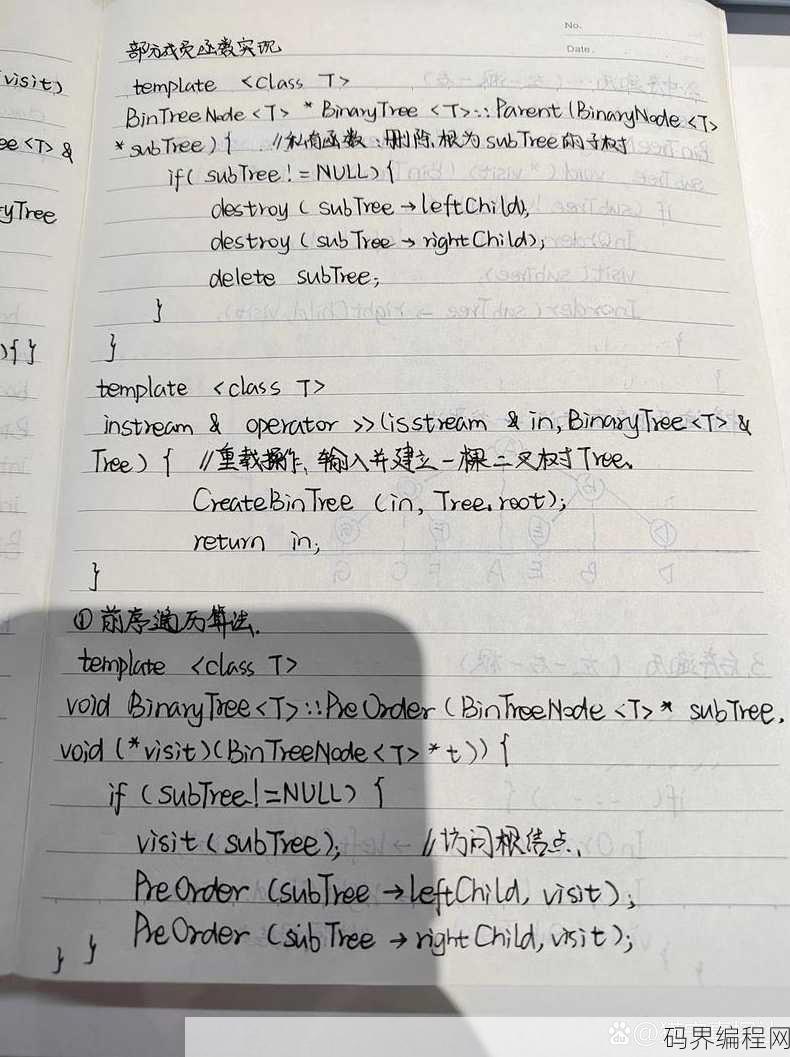 No.
Date.
部分成员函数实现
template <class T>
BinTreeNode<T> * BinaryTree <T>::Parent(BinaryNode<T>
* subTree) { //私有函数:删除根为subTree的子树
if( subTree != NULL) {
destroy ( subTree → leftChild),
destroy ( subTree → rightChild);
delete subTree;
}
}
template <class T>
instream & operator >> (isstream & in, BinaryTree<T> &
Tree) { //重载操作,输入并建立一棵二叉树Tree.
CreateBinTree (in, Tree.root);
return in;
}
①前序遍历算法.
template <class T>
void BinaryTree<T>::PreOrder (BinTreeNode <T> * subTree,
void (*visit)(BinTreeNode<T> *t)) {
if (subTree!=NULL) {
visit (subTree); //访问根结点.
PreOrder (subTree → leftChild, visit);
PreOrder (subTree → rightChild, visit);
} }
visit)
ee <T> &
ryTree
){ }
码界编程网